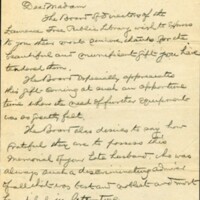 Dear Madam
The Board of Directors of the
Lawrence Free Public Library wish to express
to you their most sincere thanks for the
beautiful and magnificent gift you have
tendered them.
The Board especially appreciates
this gift coming at such an opportune
time when the need of further equipment
was so greatly felt.
The Board also desires to say how
grateful they are to possess this
Memorial of your late husband who was
always such a discriminating admirer
of all that was best and artistic and most